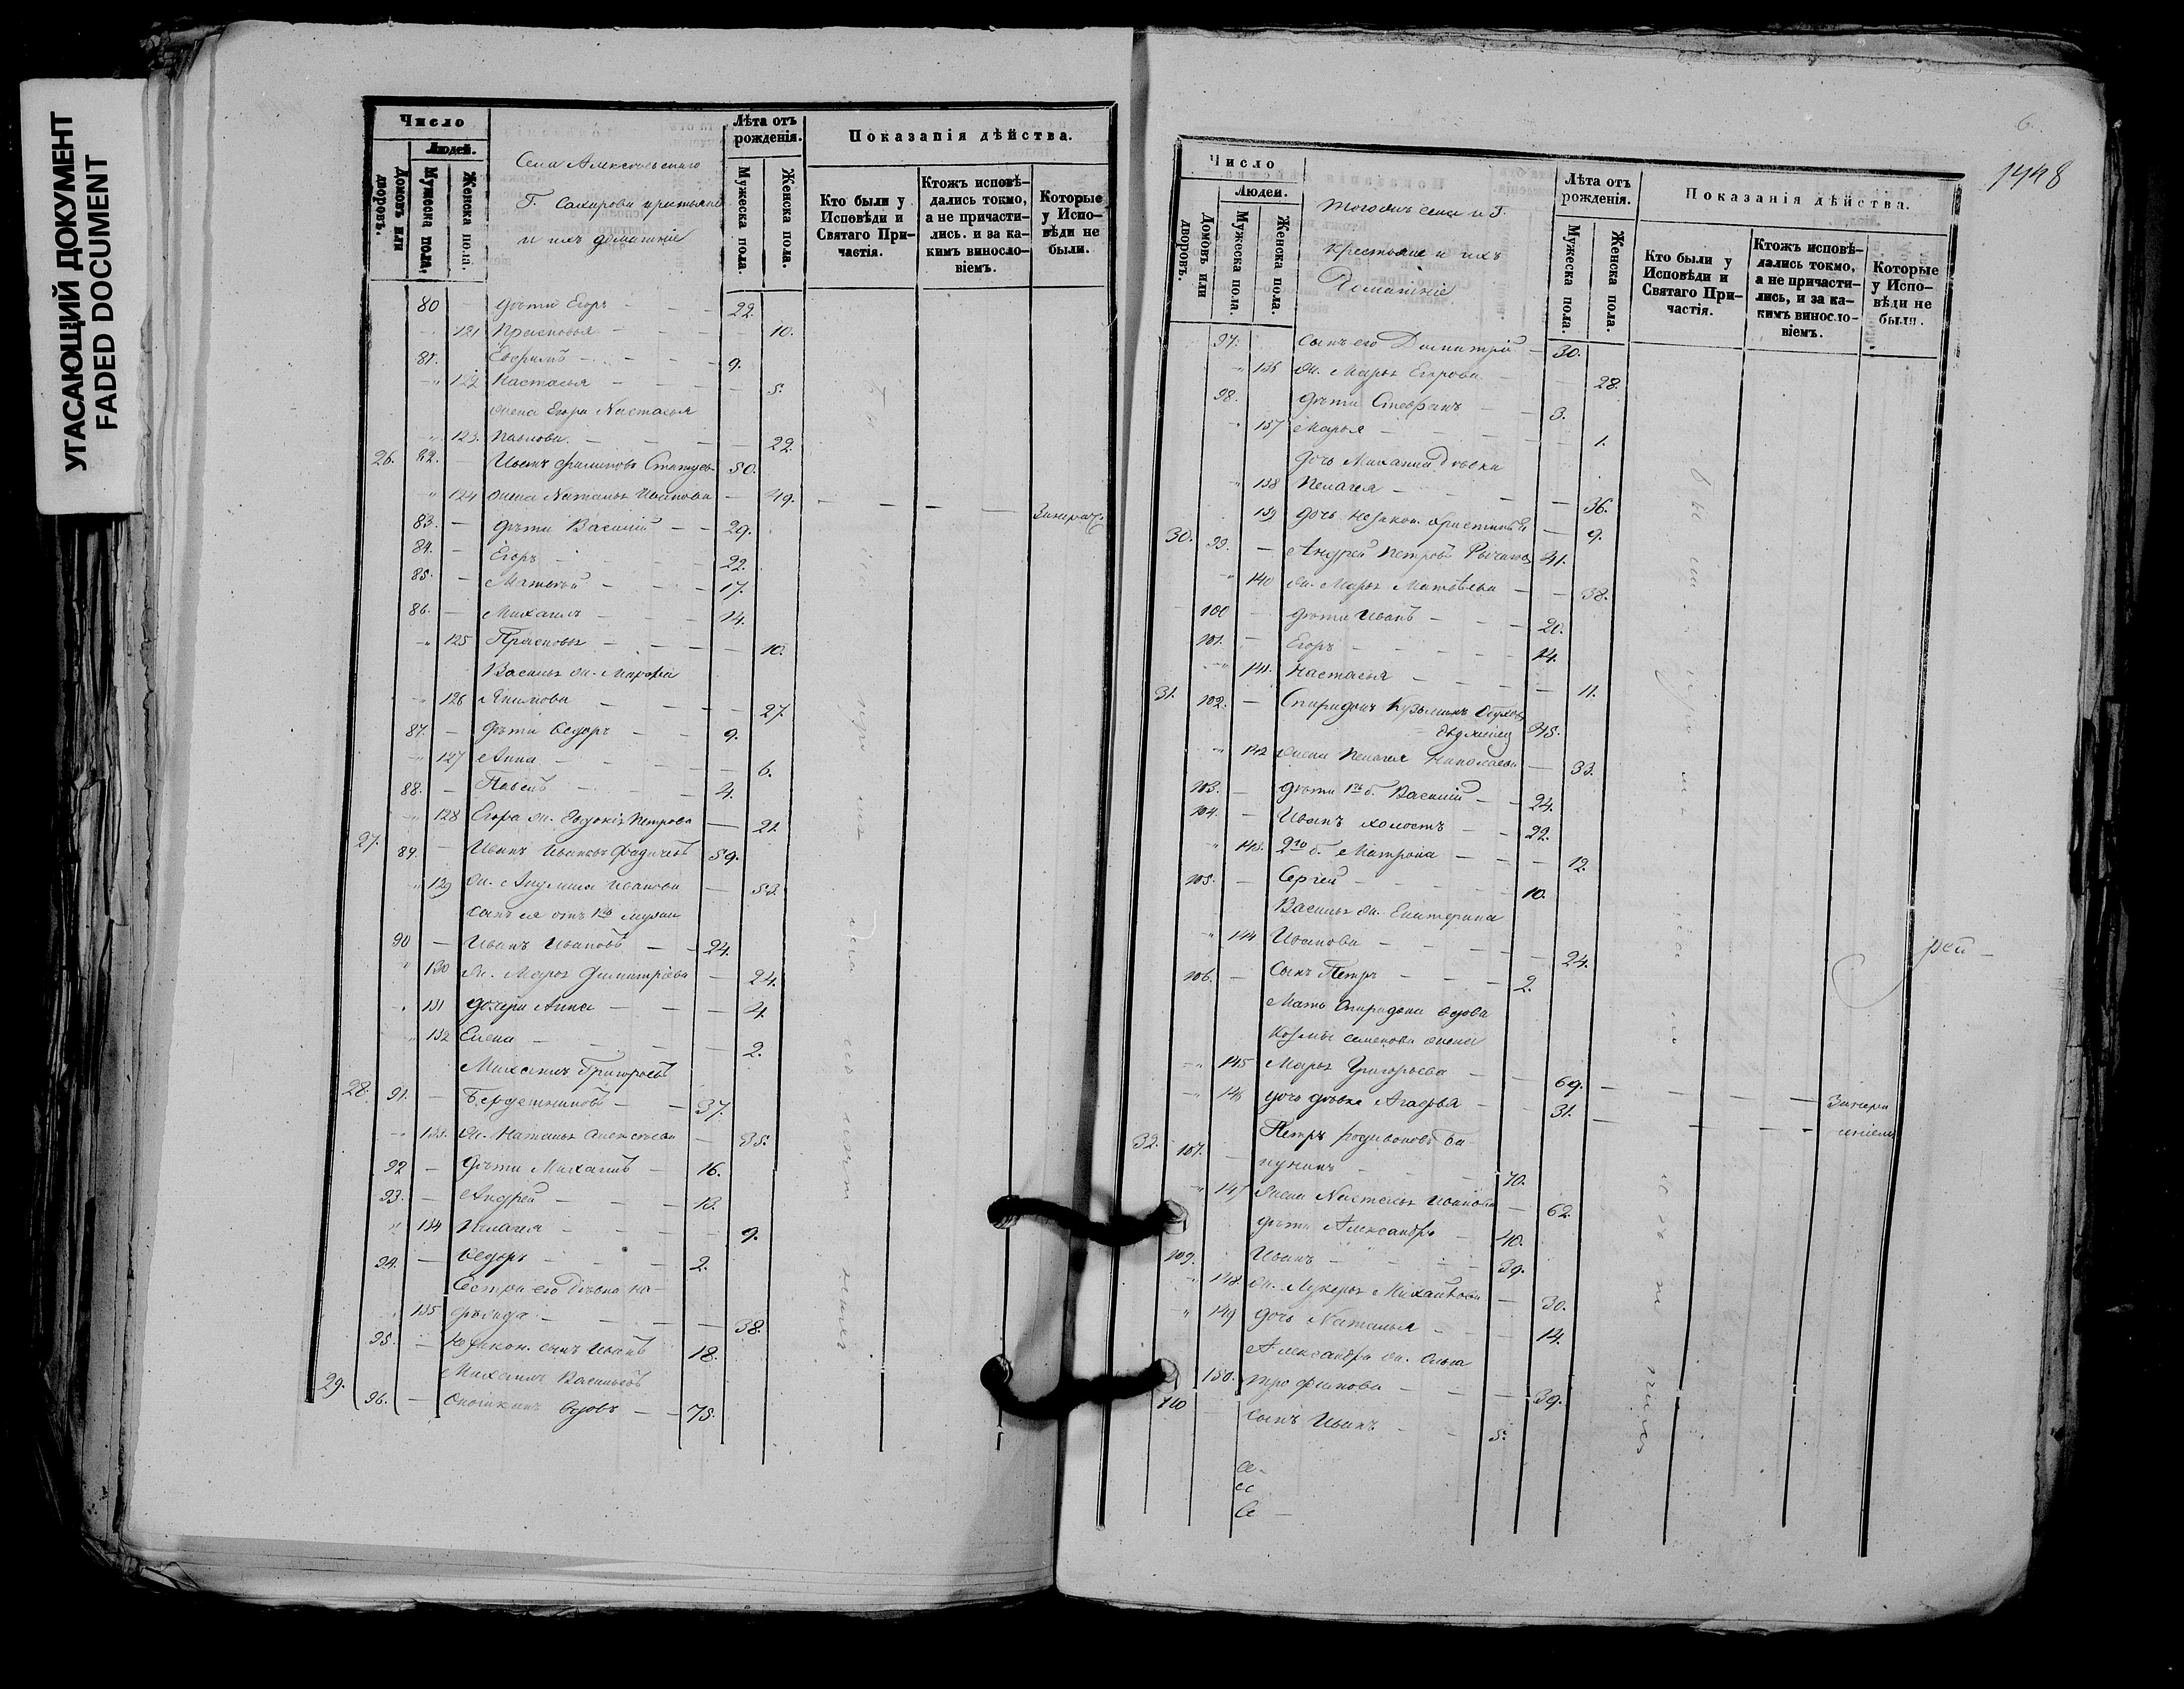 УГАСАЮЩИЙ ДОКУМЕНТ
FADED DOCUMENT
Число
Людей.
Домовъ или дворовъ.
Мужеска пола.
Женска пола.
Села Алексѣевскаго
Г. Сахарова крестьяне
и ихъ домашніе
Лѣта отъ рожденія.
Мужеска пола.
Женска пола.
Показанія дѣйства.
Кто были у Исповѣди и Святаго Причастія.
Ктожъ исповѣдались токмо, а не причастились. и за какимъ винословіемъ.
Которые у Исповѣди не были.
80 — дѣти Егоръ — 22.
" 121 Прасковья — 10.
81. Ефимъ — 9.
" 122 Настасья — 5.
жена Егора Настасья
" 123. Павлова. — 22.
26. 82. — Иванъ Филиповъ 50.
" 124 жена Наталья Иванова — 49.
83. — дѣти Василій — 29.
84. — Егоръ — 22.
85. — Матвѣй — 17.
86. — Михаилъ — 14.
" 125 Прасковья — 10.
Василья ж. Марфа
" 126 Якимова — 27.
87. — дѣти Ѳедоръ — 9.
" 127 Анна — 6.
88. — Павелъ — 4.
" 128 Егора ж. Евдокія Петрова — 21.
27. 89. — Иванъ Ивановъ 59.
" 129 ж. Акулина Иванова — 53.
сынъ ея отъ 1го мужа
90 — Иванъ Ивановъ — 24.
" 130 ж. Марья Димитріева — 24.
" 131 дочери Анна — 4.
" 132 Елена — 2.
Михаилъ Григорьевъ
28. 91. — Бердешниковъ — 37.
" 133. ж. Наталья Алексѣева — 35.
92 — дѣти Михаилъ — 16.
93. — Андрей — 13.
" 134 Пелагея — 9.
94. — Ѳедоръ — 2.
Сестра его дѣвка
" 135 — 38.
95. — незакон. сынъ Иванъ 18.
Михаилъ Васильевъ
29. 96. — вдовъ — 75.
6.
1448
Число
Людей.
Домовъ или дворовъ.
Мужеска пола.
Женска пола.
тогожъ села и Г.
Крестьяне и ихъ
Домашніе
Лѣта отъ рожденія.
Мужеска пола.
Женска пола.
Показанія дѣйства.
Кто были у Исповѣди и Святаго Причастія.
Ктожъ исповѣдались токмо, а не причастились, и за какимъ винословіемъ.
Которые у Исповѣди не были.
97. сынъ его Димитрій — 30.
" 136 ж. Марья Егорова — 28.
98. дѣти Стефанъ — 3.
" 137 Марья — 1.
дочь Михаила дѣвка
" 138 Пелагея — 36.
139 дочь незакон. — 9.
30. 99. — Андрей Петровъ 41.
" 140 ж. Марья Матвѣева — 38.
100 — дѣти Иванъ — 20.
101. — Егоръ — 14.
" 141. Настасья — 11.
31. 102. — Спиридонъ Кузьминъ
45.
" 142 жена Пелагея Николаева — 33.
103. — дѣти 1го б. Василій — 24.
104. — Иванъ холостъ — 22.
" 143. 2го б. Матрона — 12.
105. — Сергей — 10.
Василья ж. Екатерина
" 144 Иванова — 24.
106. — сынъ Петръ — 2.
Мать Спиридона вдова
Козьмы Семенова жена
" 145 Марья Григорьева — 69.
" 146 дочь дѣвка Агафья — 31.
32. 107. — Петръ Родивоновъ
70.
" 147 жена Наталья Иванова — 62.
дѣти Александръ — 40.
109. Иванъ — 39.
" 148. ж. Лукерья Михайлова — 30.
" 149 дочь Наталья — 14.
Александра ж. Ольга
150. Трофимова — 39.
110 сынъ Иванъ — 5.